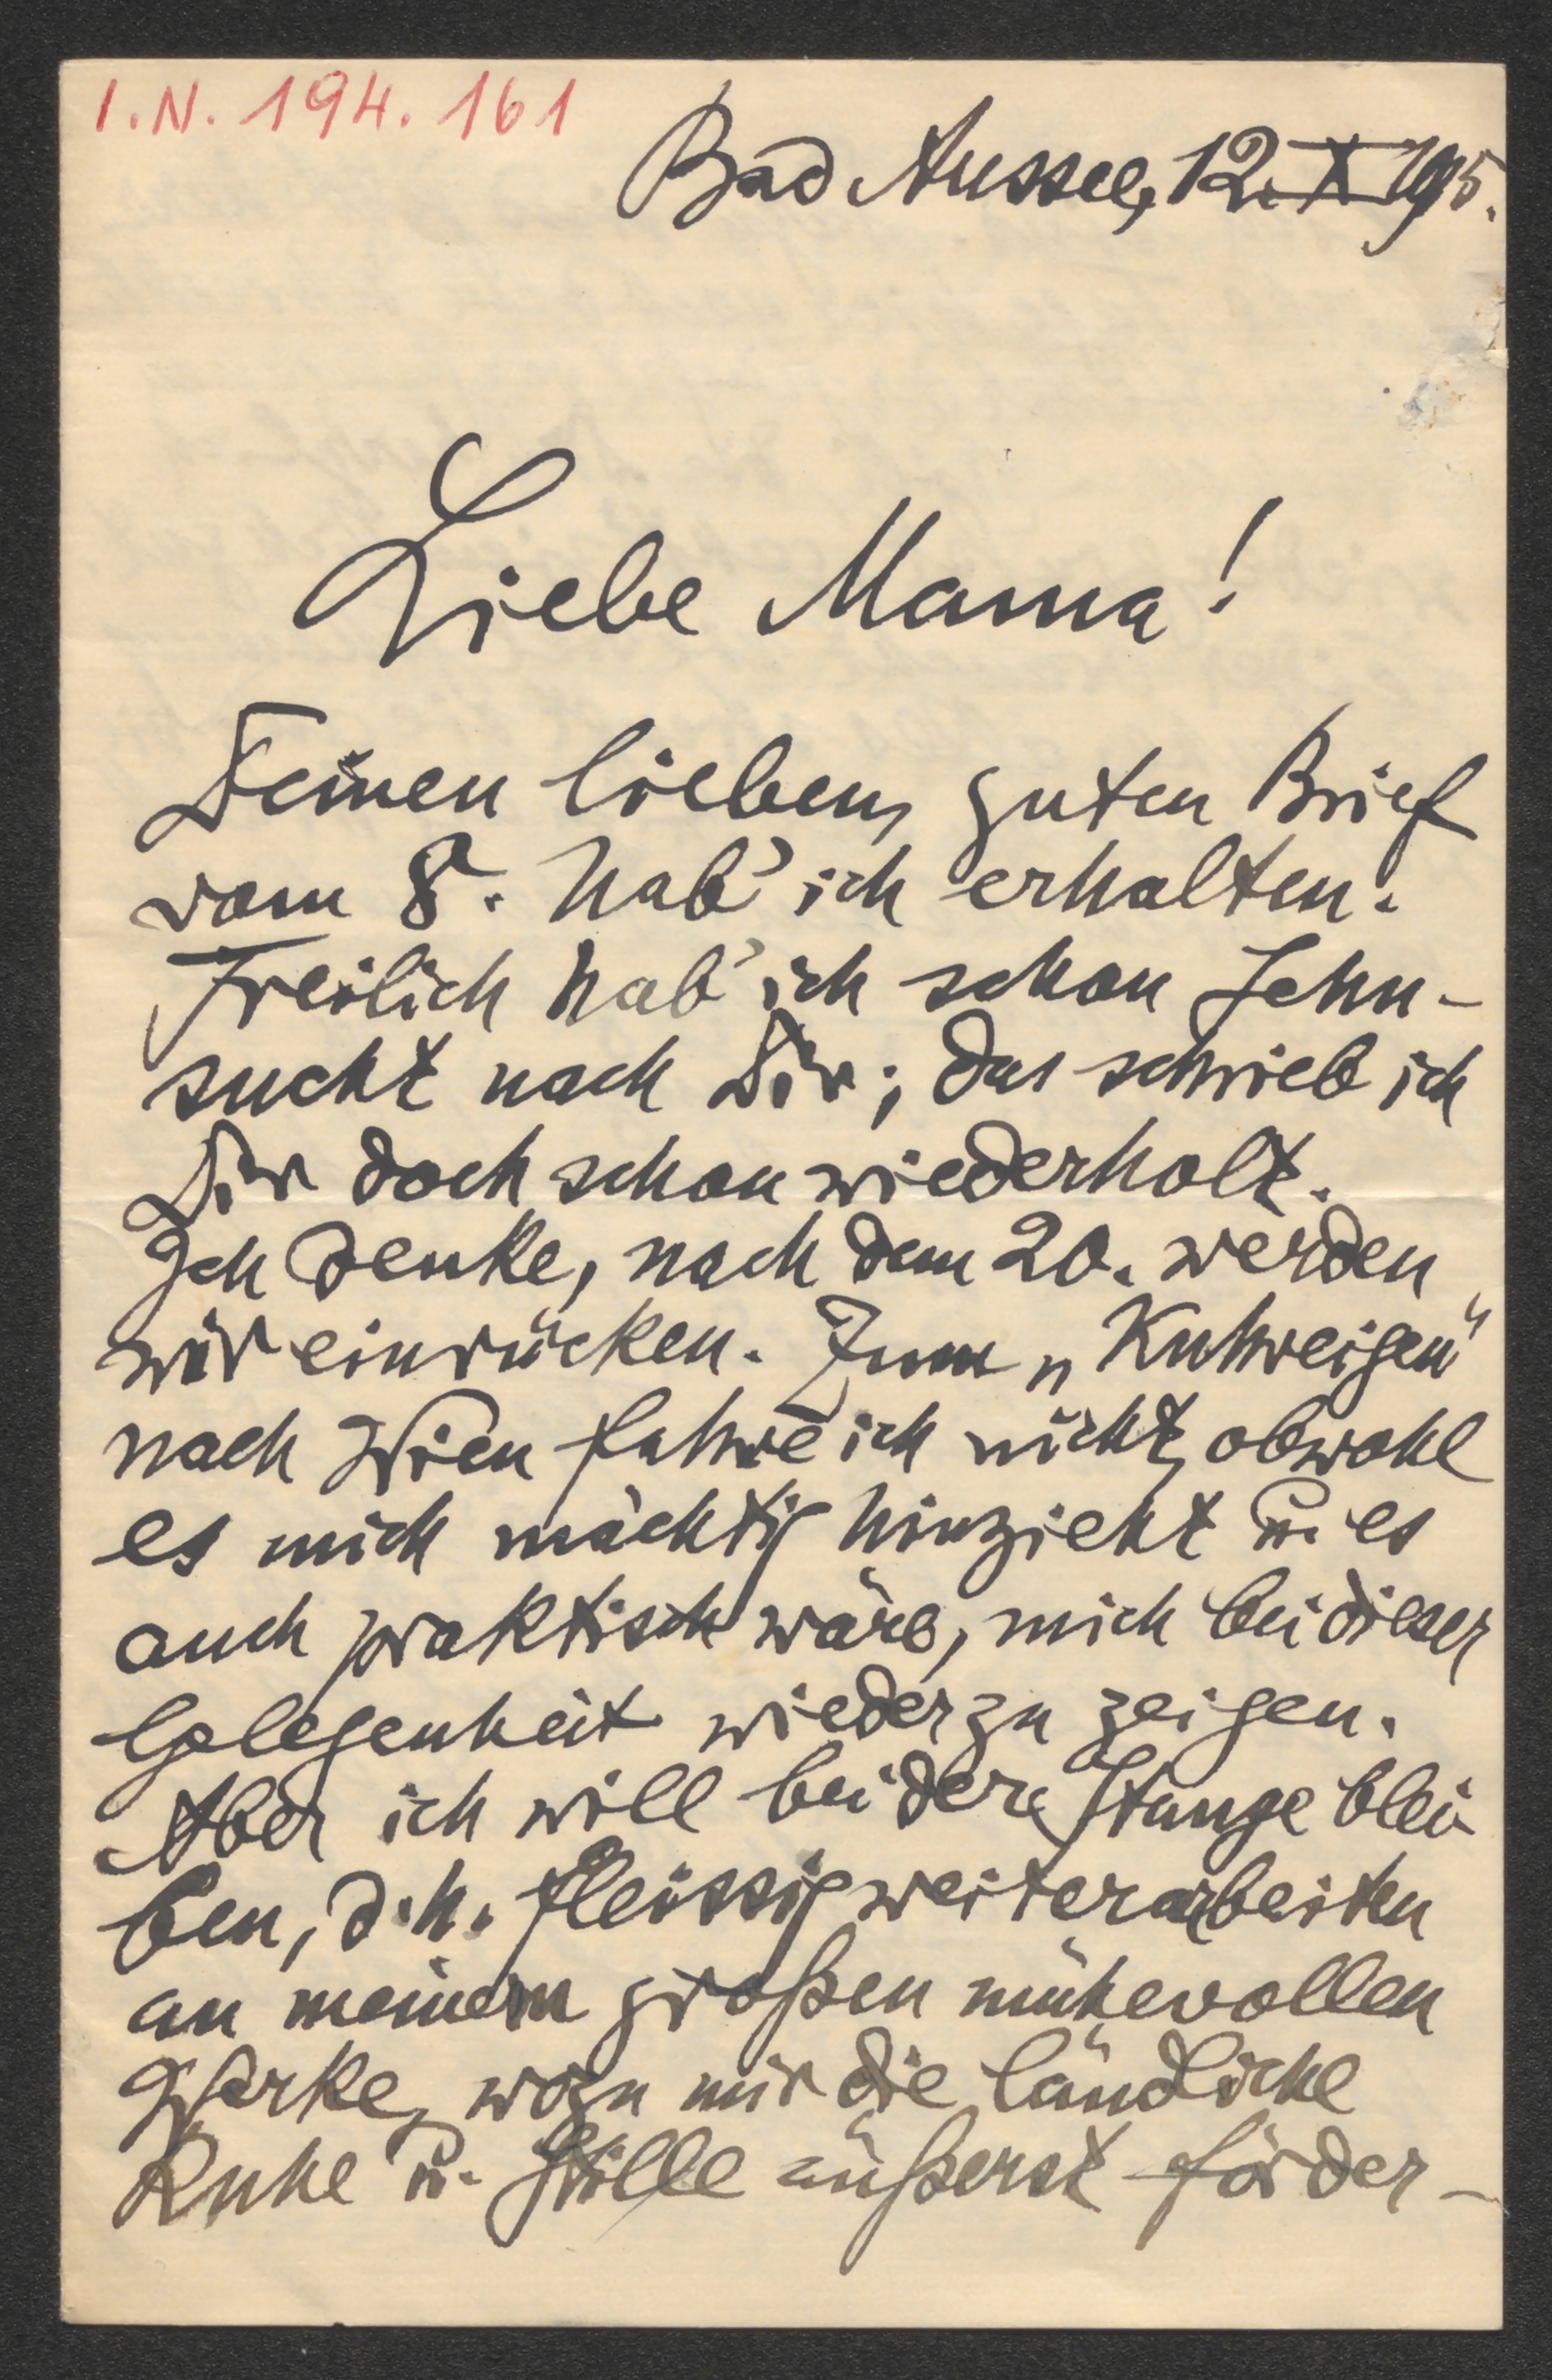 I.N. 194.161
Bad Aussee, 12. X 1915.
Liebe Mama!
Deinen lieben, guten Brief
vom 8. hab' ich erhalten.
Freilich hab' ich schon Sehn-
sucht nach Dir; das schrieb ich
Dir doch schon wiederholt.
Ich denke, nach dem 20. werden
wir einrücken. Zum „Kuhreigen"
nach Wien fahre ich nicht, obwohl
es mich mächtig hinzieht u. es
auch praktisch wäre, mich bei dieser
Gelegenheit wieder zu zeigen.
Aber ich will bei der Stange blei-
ben, d.h. fleissig weiterarbeiten
an meinem großen mühevollen
Werke, wozu mir die ländliche
Ruhe u. Stille äußerst förder-